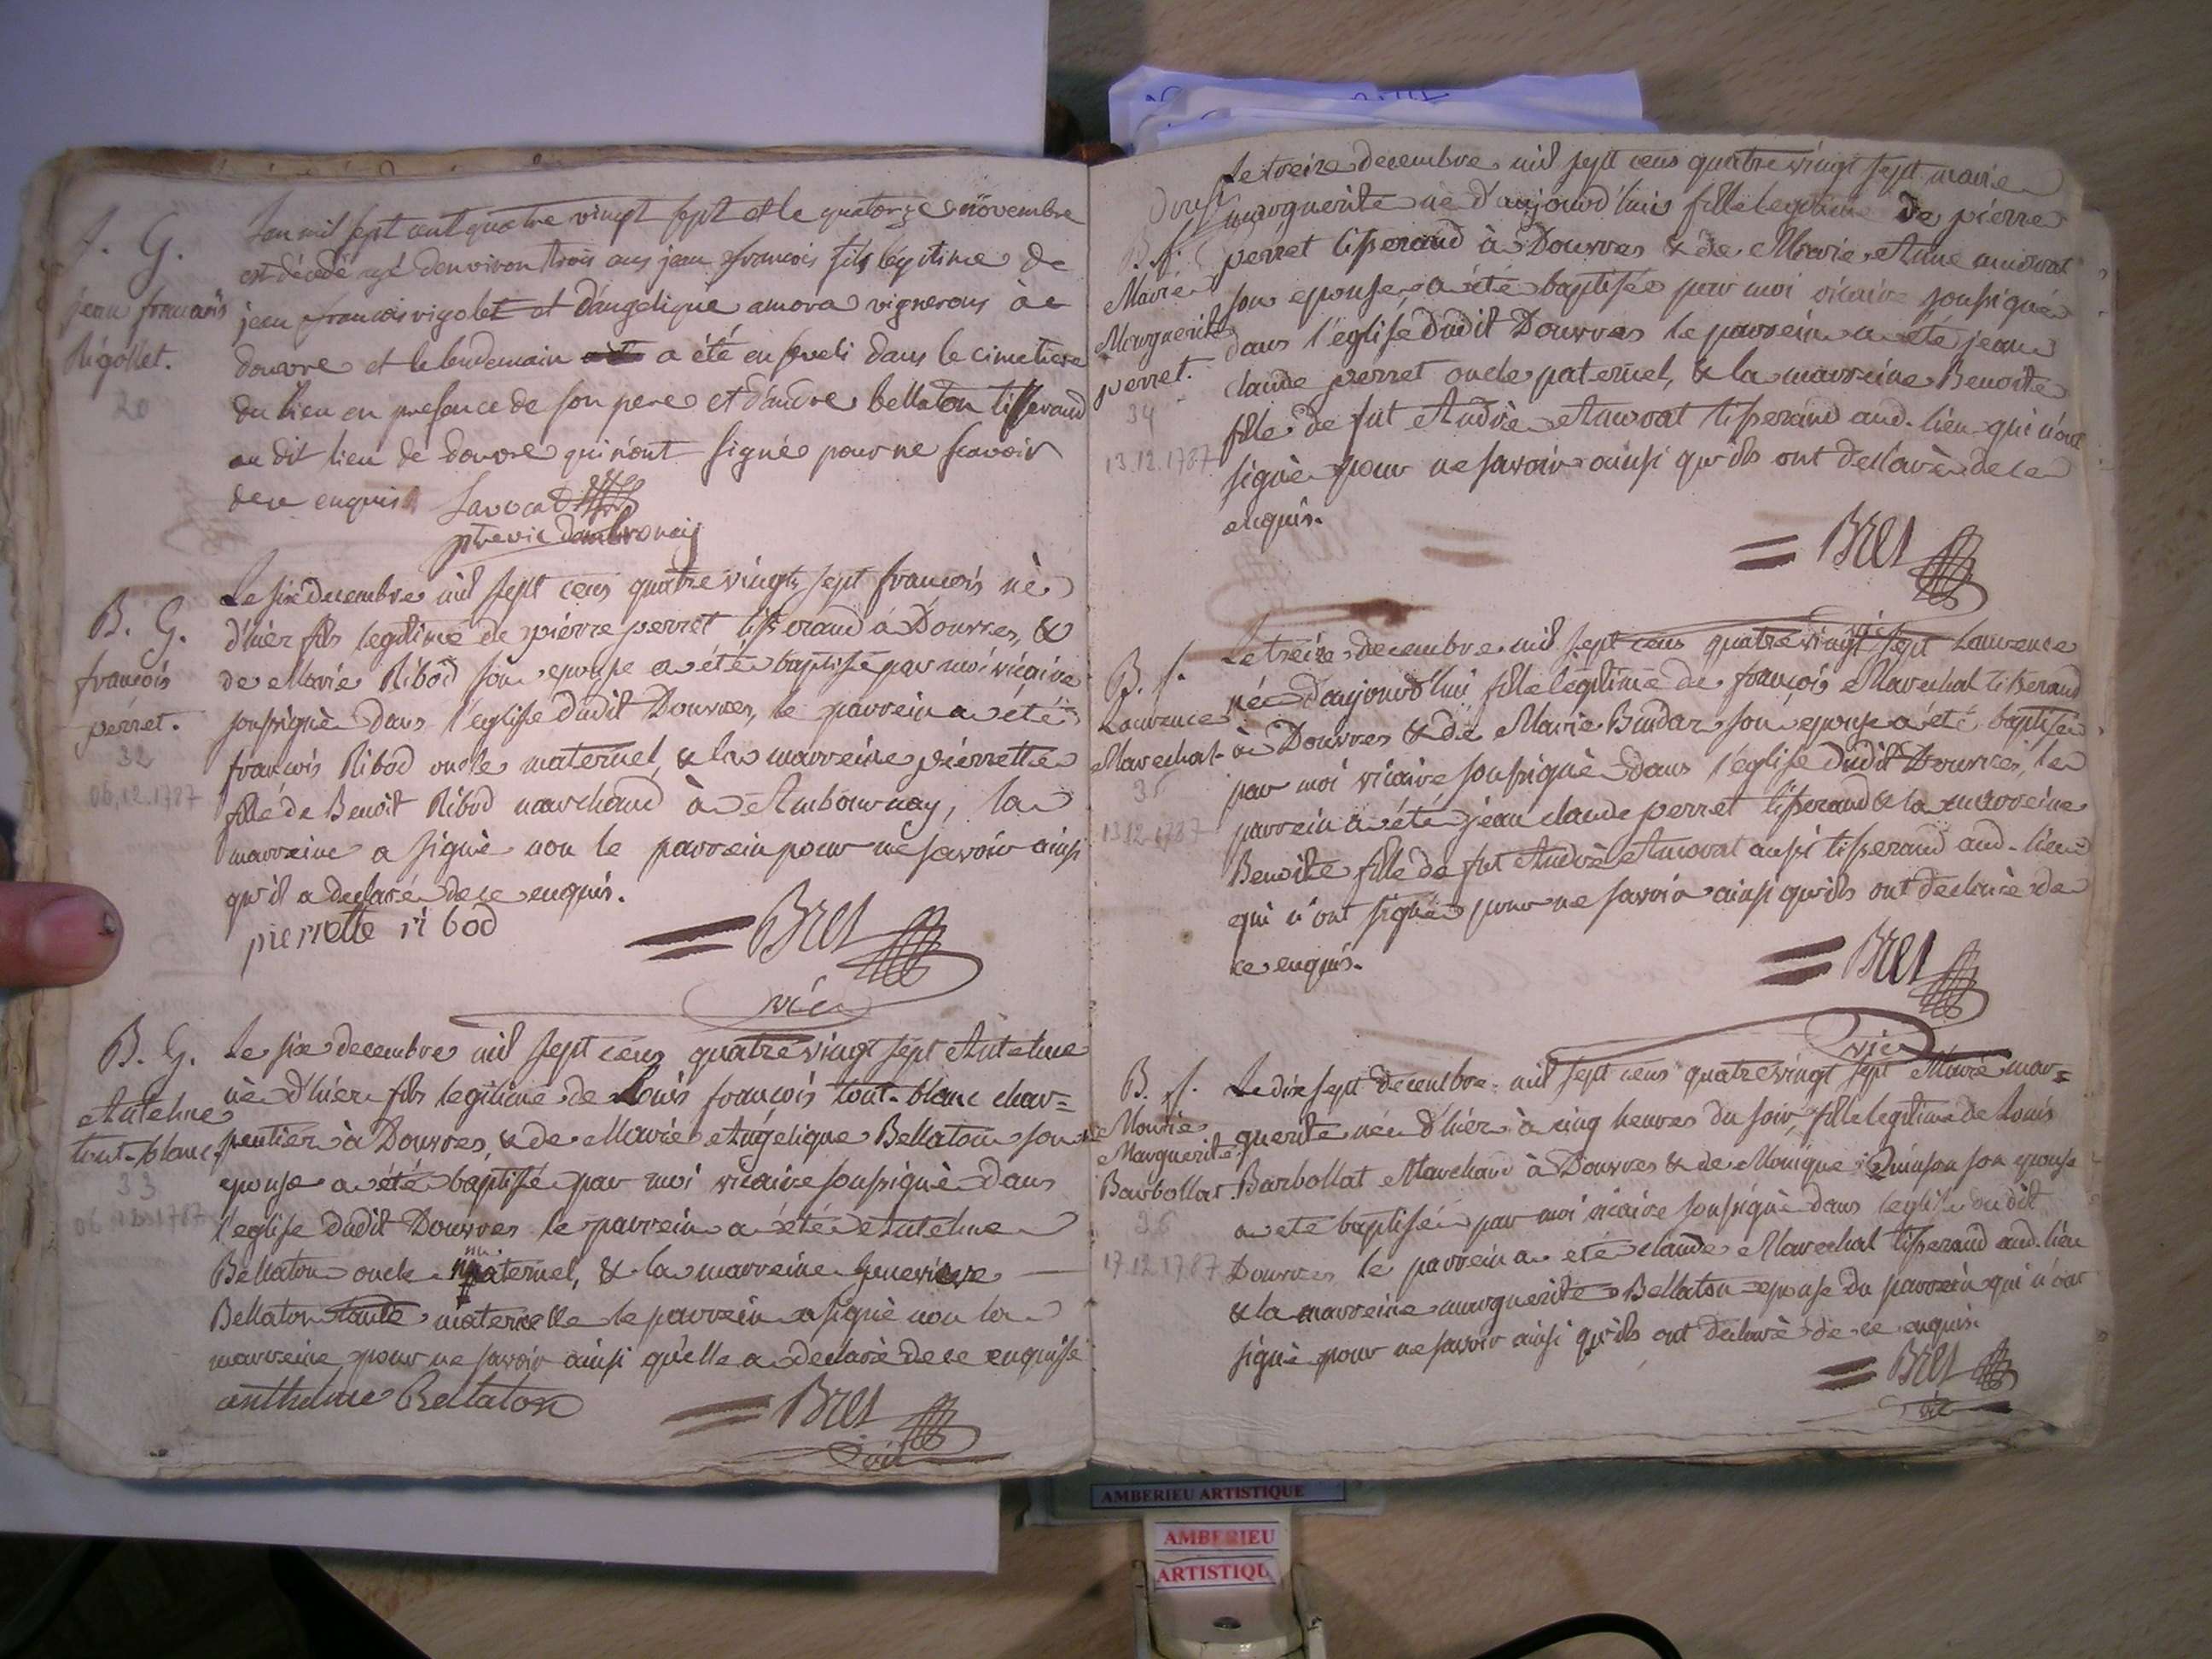 S. G.
jean francois
Rigollet.
20
Lan mil sept cent quatre vingt sept et le quatorze novembre
est décedé agé denviron trois ans jean francois fils légitime de
jean francois rigolet et d'angelique amora vignerons à
douvre et le lendemain a été enseveli dans le cimetiere
du lieu en presence de son pere et d'andre bellaton tisserand
au dit lieu de douvre qui n'ont signée pour ne scavoir
de ce enquis
Lavocat
ptre vic d'ambronay
B. G.
francois
perret.
32
06.12.1787
Le six decembre mil sept cens quatre vingt sept francois né
d'hier fils legitime de pierre perret tisserand à Douvres, &
de Marie Ribod son epouse a été baptisé par moi vicaire
soussigné dans l'eglise dudit Douvres, le parrein a été
francois Ribod oncle maternel, & la marreine pierrette
fille de Benoit Ribod marchand à Ambournay, la
marreine a signé non le parrein pour ne savoir ainsi
qu'il a declaré de ce enquis.
pierrette ribod
= Bret
vic
B. G.
Antelme
tout-blanc.
33
06.12.1787
Le six decembre mil sept cens quatre vingt sept Antelme
né d'hier fils legitime de Louis francois tout-blanc char=
pentier à Douvres, & de Marie Angelique Bellaton son
epouse a été baptisé par moi vicaire soussigné dans
l'eglise dudit Douvres le parrein a été Antelme
Bellaton oncle maternel, & la marreine Genevieve
Bellaton tante maternelle le parrein a signé non la
marreine pour ne savoir ainsi qu'elle a declaré de ce enquise
anthelme Bellaton
= Bret
vic
B. f.
Marie
Marguerite
perret.
34
13.12.1787
Le treize decembre mil sept cens quatre vingt sept marie
marguerite né d'aujourd'hui fille legitime de pierre
perret tisserand à Douvres & de Marie Anne amorat
son epouse, a été baptisée par moi vicaire soussigné
dans l'eglise dudit Douvres le parrein a été jean
claude perret oncle paternel, & la marreine Benoite
fille de fut Andrè Amorat tisserand aud. lieu qui n'ont
signè pour ne savoir ainsi qu'ils ont declarè de ce
enquis.
= Bret
vic
B. f.
Laurence
Marechal
35
13.12.1787
Le treize decembre mil sept cens quatre vingt sept Laurence
née d'aujourd'hui fille legitime de françois Marechal tisserand
à Douvres & de Marie Bindar son epouse a été baptisée
par moi vicaire soussigné dans l'eglise dudit Douvres, le
parrein a été jean claude perret tisserand & la marreine
Benoite fille de fut Andrè Amorat aussi tisserand aud. lieu
qui n'ont signé pour ne savoir ainsi qu'ils ont declaré de
ce enquis.
= Bret
vic
B. f.
Marie
Marguerite
Barbollat.
36
17.12.1787
Le dix sept decembre mil sept cens quatre vingt sept Marie mar=
guerite née d'hier à cinq heures du soir, fille legitime de Louis
Barbollat Marchand à Douvres & de Monique Quinson son epouse
a eté baptisée par moi vicaire soussigné dans l'eglise dudit
Douvres le parrein a eté claude Marechal tisserand aud. lieu
& la marreine marguerite Bellaton epouse du parrein qui n'ont
signé pour ne savoir ainsi qu'ils ont declaré de ce enquis.
= Bret
vic
AMBERIEU ARTISTIQUE
AMBERIEU
ARTISTIQU